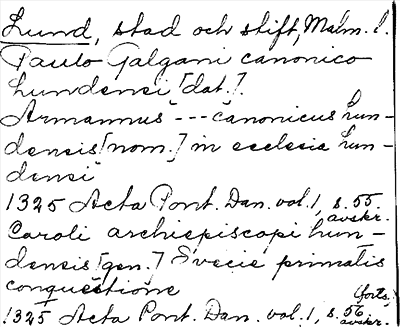 Lund, stad och stift, Malm. l.
Paulo Galgani canonico
Lundensi [dat.].
Armannus --- canonicus Lun-
densis [nom.] in ecclesia Lun-
densi
1325 Acta Pont. Dan. vol. 1, s. 55.
avskr.
Caroli archiepiscopi Lun-
densis [gen.] Svecie primatis
conquestione
(forts.)
1325 Acta Pont. Dan. vol. 1, s. 56.
avskr.